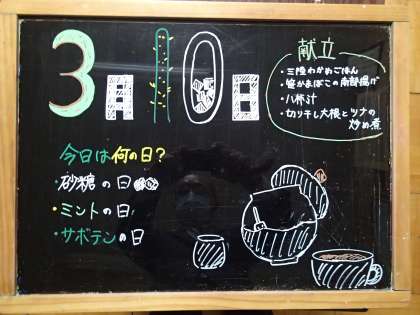 3月10日
献立
・三陸わかめごはん
・笹かまぼこの南部揚げ
・八杯汁
・切り干し大根とツナの
炒め煮
今日は何の日？
・砂糖の日
・ミントの日
・サボテンの日